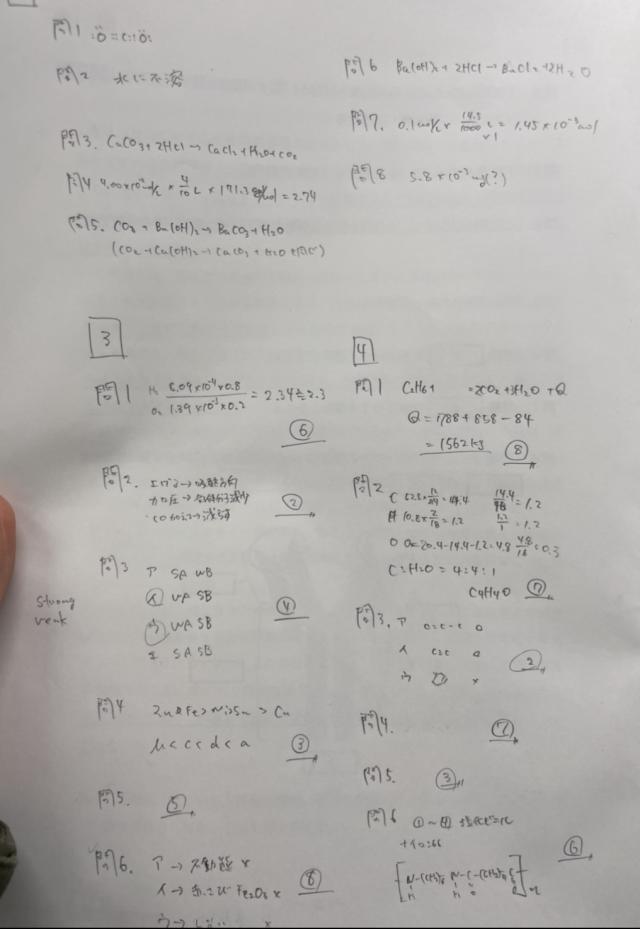 問1 :Ö=C=Ö:
問2 水に不溶
問3. CaCO₃+2HCl→CaCl₂+H₂O+CO₂
問4 4.00×10⁻²mol/L × 4/10 L × 171.3g/mol = 2.74
問5. CO₂ + Ba(OH)₂→BaCO₃+H₂O
(CO₂+Ca(OH)₂→CaCO₃+H₂O
問6 Ba(OH)₂+2HCl→BaCl₂+2H₂O
問7. 0.1mol/L× 14.5/1000 L ×1 = 1.45×10⁻³mol
問8 5.8×10⁻³mol(?)
3
問1 H₂ 6.09×10⁻⁴×0.8
O₂ 1.39×10⁻³×0.2 = 2.34≒2.3
⑥
問2.
加圧→気体分子減少
②
問3 ア SA WB
イ WA SB
ウ WA SB
エ SA SB
④
strong
weak
問4 Zn Fe>Ni>Sn > Cu
b<c<d<a ③
問5. ⑤
問6. ア→不動態×
イ→赤さび Fe₂O₃×
⑧
ウ→ ×
4
問1 C₂H₆+ =2CO₂+3H₂O+Q
Q=1788+858-84
=1562kJ ⑧
問2 C 52.8×12/44=14.4 14.4/12=1.2
H 10.8×2/18=1.2 1.2/1=1.2
O 20.4-14.4-1.2=4.8 4.8/16=0.3
C:H:O=4:4:1
C₄H₄O ⑦
問3. ア C=C-C ○
イ C≡C ○
ウ ×
②
問4. ⑦
問5. ③
問6 ①~④
+イ0:66
⑥